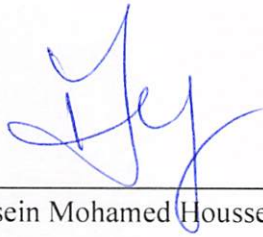 sein Mohamed Housse